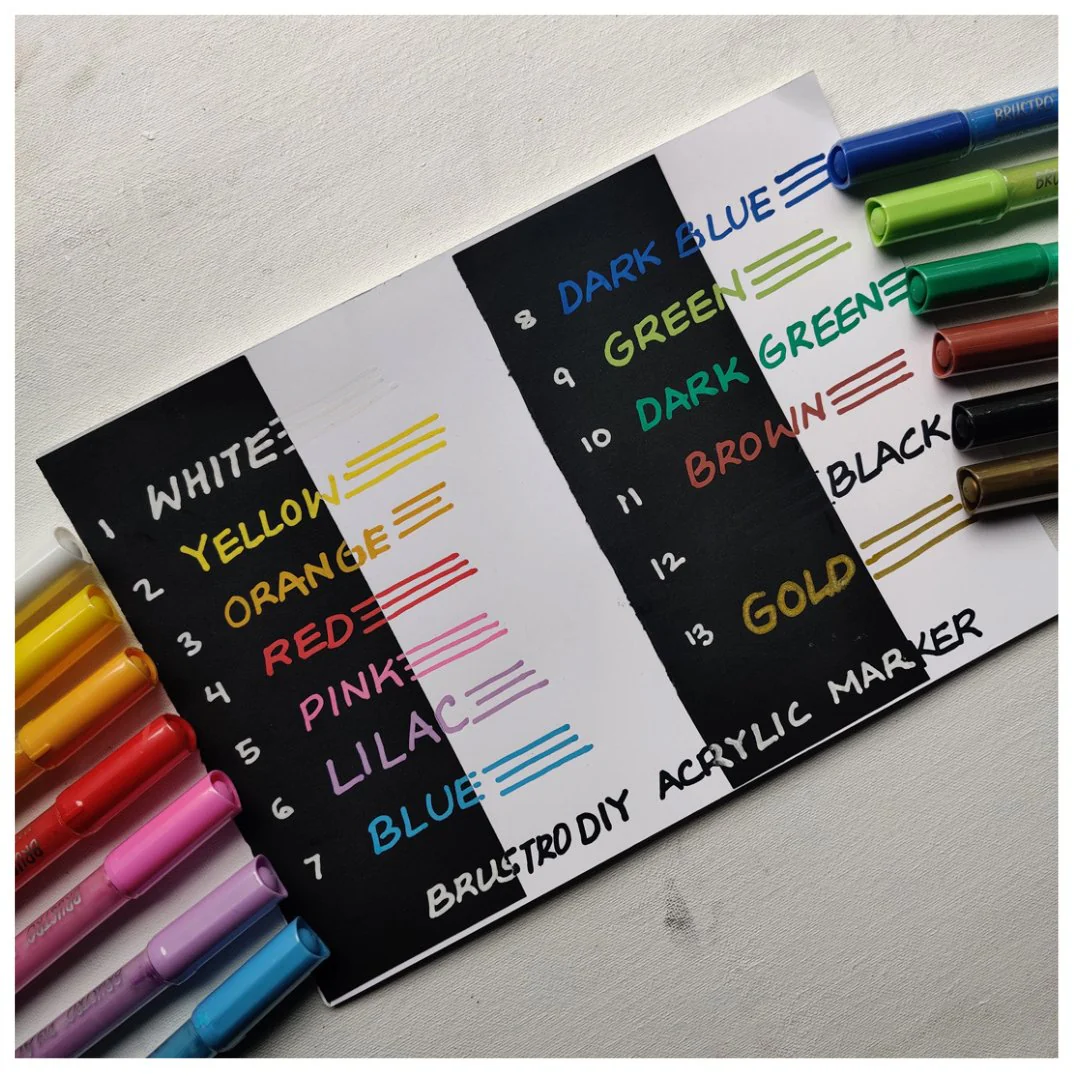 1 WHITE
2 YELLOW
3 ORANGE
4 RED
5 PINK
6 LILAC
7 BLUE
8 DARK BLUE
9 GREEN
10 DARK GREEN
11 BROWN
12 BLACK
13 GOLD
BRUSTRO DIY ACRYLIC MARKER
BRUSTRO